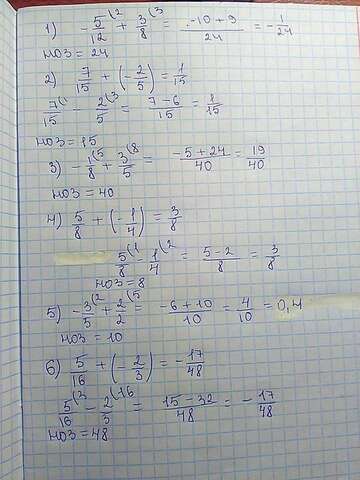 1) -5/12(2 + 3/8(3 = -10+9/24 = -1/24
НОЗ = 24
2) 7/15 + (-2/5) = 1/15
7/15(1 - 2/5(3 = 7-6/15 = 1/15
НОЗ = 15
3) -1/8(5 + 3/5(8 = -5+24/40 = 19/40
НОЗ = 40
4) 5/8 + (-1/4) = 3/8
5/8(1 - 1/4(2 = 5-2/8 = 3/8
НОЗ = 8
5) -3/5(2 + 2/2(5 = -6+10/10 = 4/10 = 0,4
НОЗ = 10
6) 5/16 + (-2/3) = -17/48
5/16(3 - 2/3(16 = 15-32/48 = -17/48
НОЗ = 48